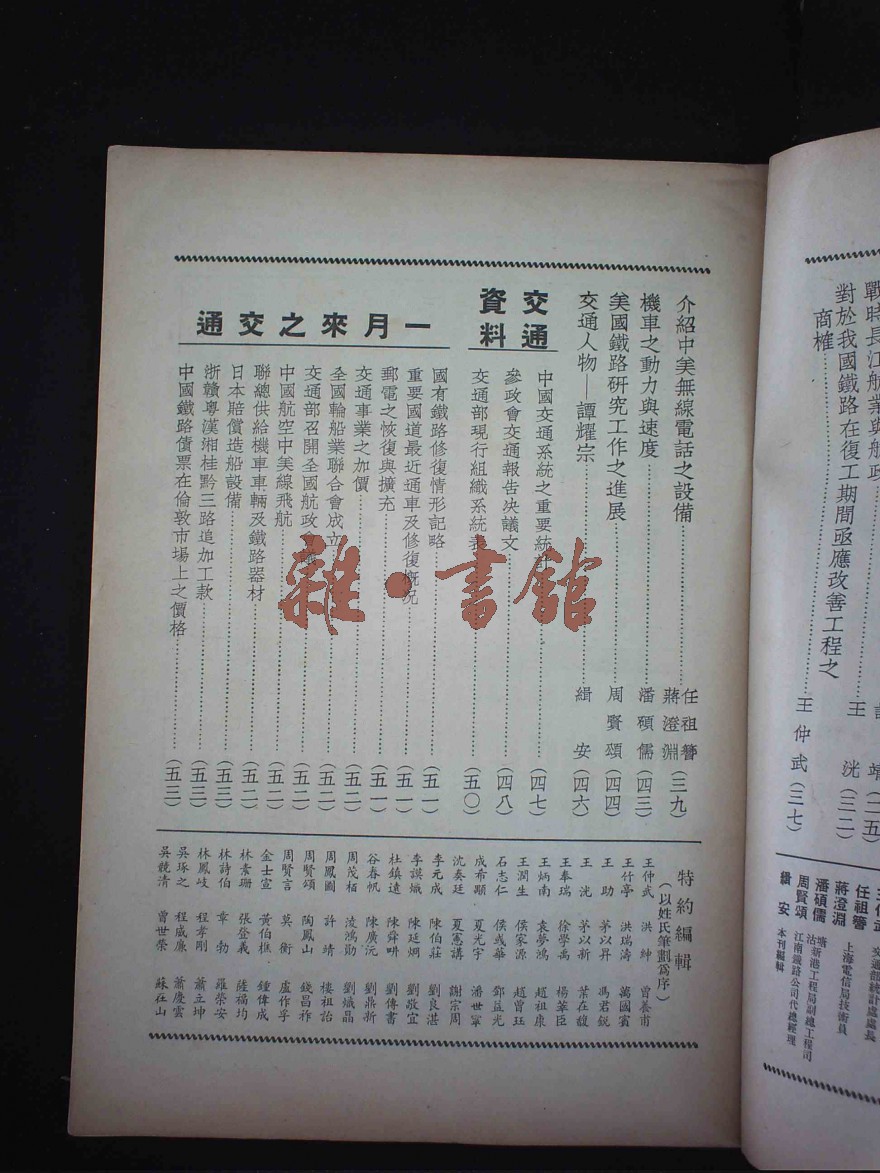 戰時長江航業與航政
對於我國鐵路在復工期間亟應改善工程之
商榷
王洸(三二)
王仲武(三七)
交通部統計處處長
任祖簪
蔣澄淵
上海電信局技術員
潘碩儒
塘沽新港工程局副總工程司
周賢頌
江南鐵路公司代總經理
緝安
本刊編輯
介紹中美無線電話之設備
任祖簪
蔣澄淵(三九)
機車之動力與速度
潘碩儒(四三)
美國鐵路研究工作之進展
周賢頌(四四)
交通人物—譚耀宗
緝安(四六)
交通
資料
中國交通系統之重要統計(四七)
參政會交通報告決議文(四八)
交通部現行組織系統表(五〇)
一月來之交通
國有鐵路修復情形記略(五一)
重要國道最近通車及修復概況(五一)
郵電之恢復與擴充(五一)
交通事業之加價(五二)
全國輪船業聯合會成立(五二)
交通部召開全國航政會議(五二)
中國航空中美線飛航(五二)
聯總供給機車車輛及鐵路器材(五二)
日本賠償造船設備(五三)
浙贛粵漢湘桂黔三路追加工款(五三)
中國鐵路債票在倫敦市場上之價格(五三)
特約編輯
(以姓氏筆劃爲序)
王仲武 洪紳 曾養甫
王竹亭 洪瑞濤 萬國賓
王助 茅以昇 馮君銳
王洸 茅以新 葉在馥
王奉瑞 徐學禹 楊莘臣
王炳南 袁夢鴻 趙祖康
王潤生 侯家源 趙曾珏
石志仁 侯彧華 鄧益光
成希顒 夏光宇 潘世寧
沈奏廷 夏憲講 謝宗周
李元成 陳伯莊 劉良湛
李謨熾 陳廷炯 劉敬宜
杜鎮遠 陳舜畊 劉傳書
谷春帆 陳廣沅 劉鼎新
周茂柏 淩鴻勛 劉熾晶
周鳳圖 許靖 樓祖詒
周賢頌 陶鳳山 錢昌祚
周賢言 莫衡 盧作孚
金士宣 黃伯樵 鍾偉成
林素珊 張登義 薩福均
林詩伯 章勃 羅榮安
林鳳岐 程孝剛 蕭立坤
吳琢之 程威廉 蕭慶雲
吳競清 曾世榮 蘇在山
雜·書館